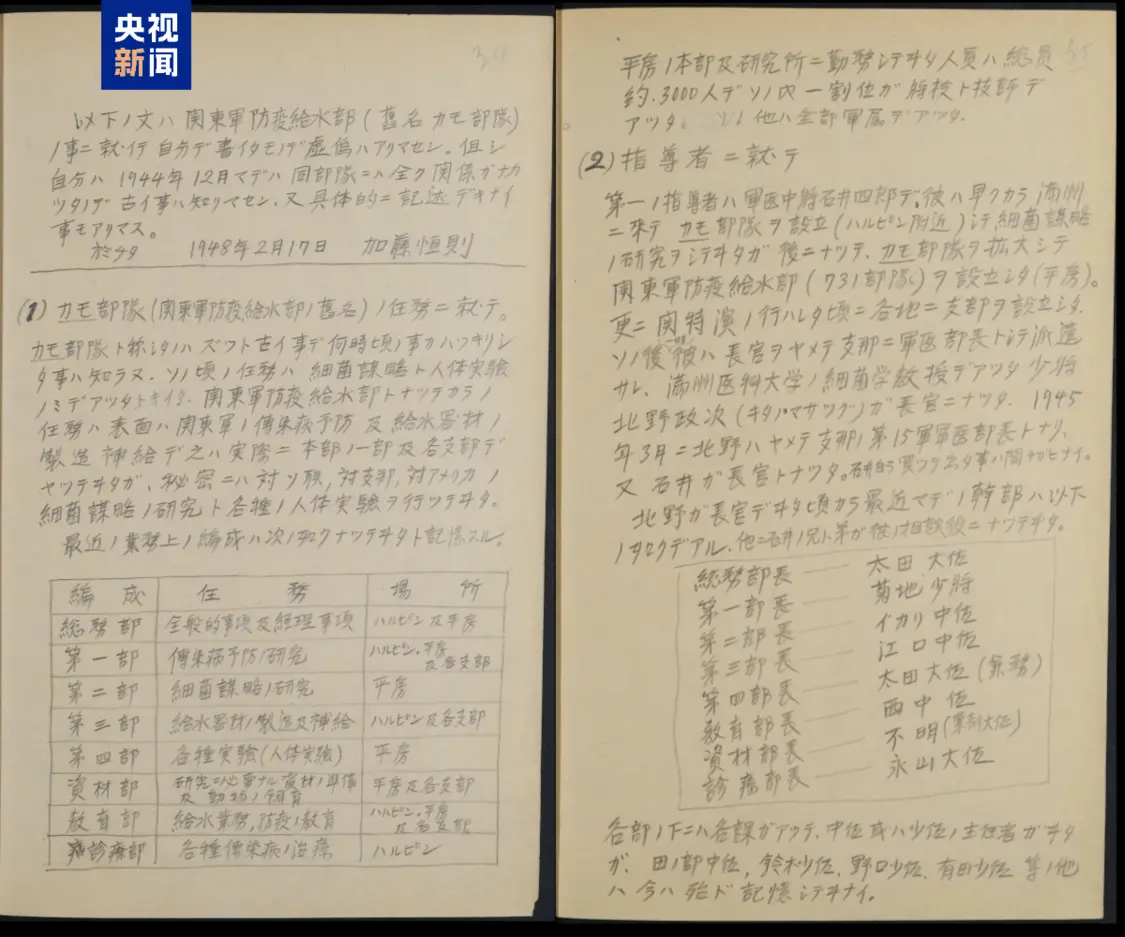 央视
新闻
34
以下ノ文ハ関東軍防疫給水部(舊名カモ部隊)
ノ事ニ就イテ自分デ書イタモノデ虚偽ハアリマセン。但シ
自分ハ1944年12月マデハ同部隊ニハ全ク関係ガナカ
ツタノデ古イ事ハ知リマセン、又具体的ニ記述デキナイ
事モアリマス。
於チタ 1948年2月17日 加藤恒則
(1) カモ部隊(関東軍防疫給水部ノ舊名)ノ任務ニ就テ。
カモ部隊ト称シタノハズツト古イ事デ何時頃ノ事カハツキリシ
タ事ハ知ラヌ.ソノ頃ノ任務ハ細菌謀略ト人体実験
ノミデアツタトキイタ.関東軍防疫給水部トナツテカラノ
任務ハ表面ハ関東軍ノ傳染病予防及給水器材ノ
製造補給デ之ハ実際ニ本部ノ一部及各支部デ
ヤツテヰタガ、秘密ニハ対ソ聯,対支那,対アメリカノ
細菌謀略ノ研究ト各種ノ人体実験ヲ行ツテヰタ。
最近ノ業務上ノ編成ハ次ノ如クナツテヰタト記憶スル.
編成 任務 場所
総務部 全般的事項及経理事項 ハルピン及平房
第一部 傳染病予防ノ研究 ハルピン.平房
及各支部
第二部 細菌謀略ノ研究 平房
第三部 給水器材ノ製造及補給 ハルピン及各支部
第四部 各種実験(人体実験) 平房
資材部 研究ニ必要ナル資材ノ準備
及動物ノ飼育 平房及各支部
教育部 給水業務,防疫ノ教育 ハルピン.平房
及各支部
診療部 各種傳染病ノ治療 ハルピン
35
平房ノ本部及研究所ニ勤務シテヰタ人員ハ総員
約.3000人デソノ内一割位ガ将校ト技師デ
アツタ。ソノ他ハ全部軍属デアツタ.
(2) 指導者ニ就テ
第一ノ指導者ハ軍医中将石井四郎デ,彼ハ早クカラ満洲
ニ来テカモ部隊ヲ設立(ハルピン附近)シテ,細菌謀略
ノ研究ヲシテヰタガ後ニナツテ、カモ部隊ヲ拡大シテ
関東軍防疫給水部(731部隊)ヲ設立シタ(平房)。
更ニ関特演ノ行ハレタ頃ニ各地ニ支部ヲ設立シタ.
ソノ後彼ハ長官ヲヤメテ支那ニ軍医部長トシテ派遣
サレ、満洲医科大学ノ細菌学教授デアツタ少将
北野政次(キタノマサツグ)ガ長官ニナツタ. 1945
年3月ニ北野ハヤメテ支那ノ第15軍軍医部長トナリ、
又石井ガ長官トナツタ。
北野ガ長官デヰタ頃カラ最近マデノ幹部ハ以下
ノ如クデアル.他ニ石井ノ兄ガ相談役ニナツテヰタ。
総務部長 —— 太田大佐
第一部長 —— 菊地少将
第二部長 —— イカリ中佐
第三部長 —— 江口中佐
第四部長 —— 太田大佐(兼務)
教育部長 —— 西中佐
資材部長 —— 不明(薬剤大佐)
診療部長 —— 永山大佐
各部ノ下ニハ各課ガアツテ.中佐又ハ少佐ノ主任者ガヰタ
ガ、田ノ部中佐,鈴木少佐.野口少佐.有田少佐等ノ他
ハ今ハ殆ド記憶シテヰナイ。